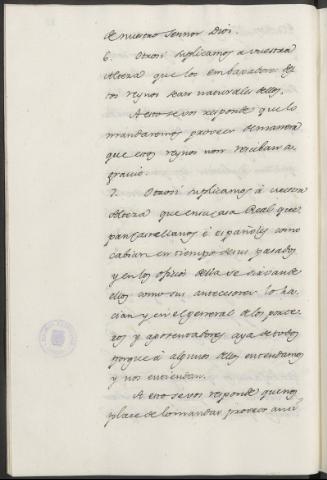 de nuestro Sennor Dios.
6. Otrosi suplicamos a vuestra
Alteza que los embaxadores de
tos reynos sean naturales dellos.
A esto se vos responde que lo
mandaremos proveer de manera
que estos reynos non reciban a-
gravio.
7. Otrosi suplicamos à vuestra
Alteza que en su casa Real que-
pan castellanos è españoles como
cabian en tiempo de sus pasados
y en los oficios della se sirva de
ellos como sus antecesores lo ha-
cian y en el general de los porte-
ros y aposentadores aya de todos
porque à algunos dellos entendamos
y nos entiendan.
A esto se vos responde que nos
place de lo mandar proveer ansi